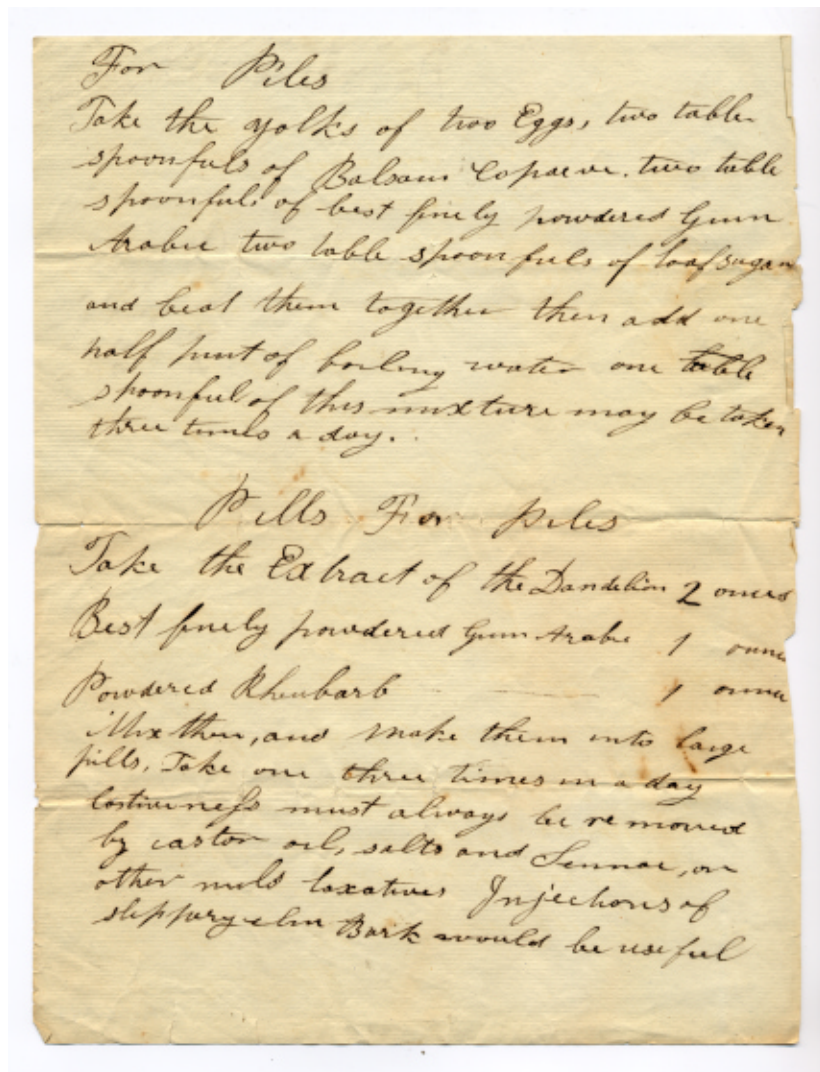 For Piles
Take the yolks of two Eggs, two table
spoonfuls of Balsam Copaeva. two table
spoonfuls of best finely powdered Gum
Arabic two table spoonfuls of loaf sugar
and beat them together then add one
half pint of boiling water one table
spoonful of this mixture may be taken
three times a day.
Pills For Piles
Take the Extract of the Dandelion 2 ounces
Best finely powdered Gum Arabic 1 ounce
Powdered Rheubarb 1 ounce
Mix then, and make them into large
pills. Take one three times in a day
Costiveness must always be removed
by castor oil, salts and Sennae, or
other mild laxatives Injections of
slippery elm Bark would be useful